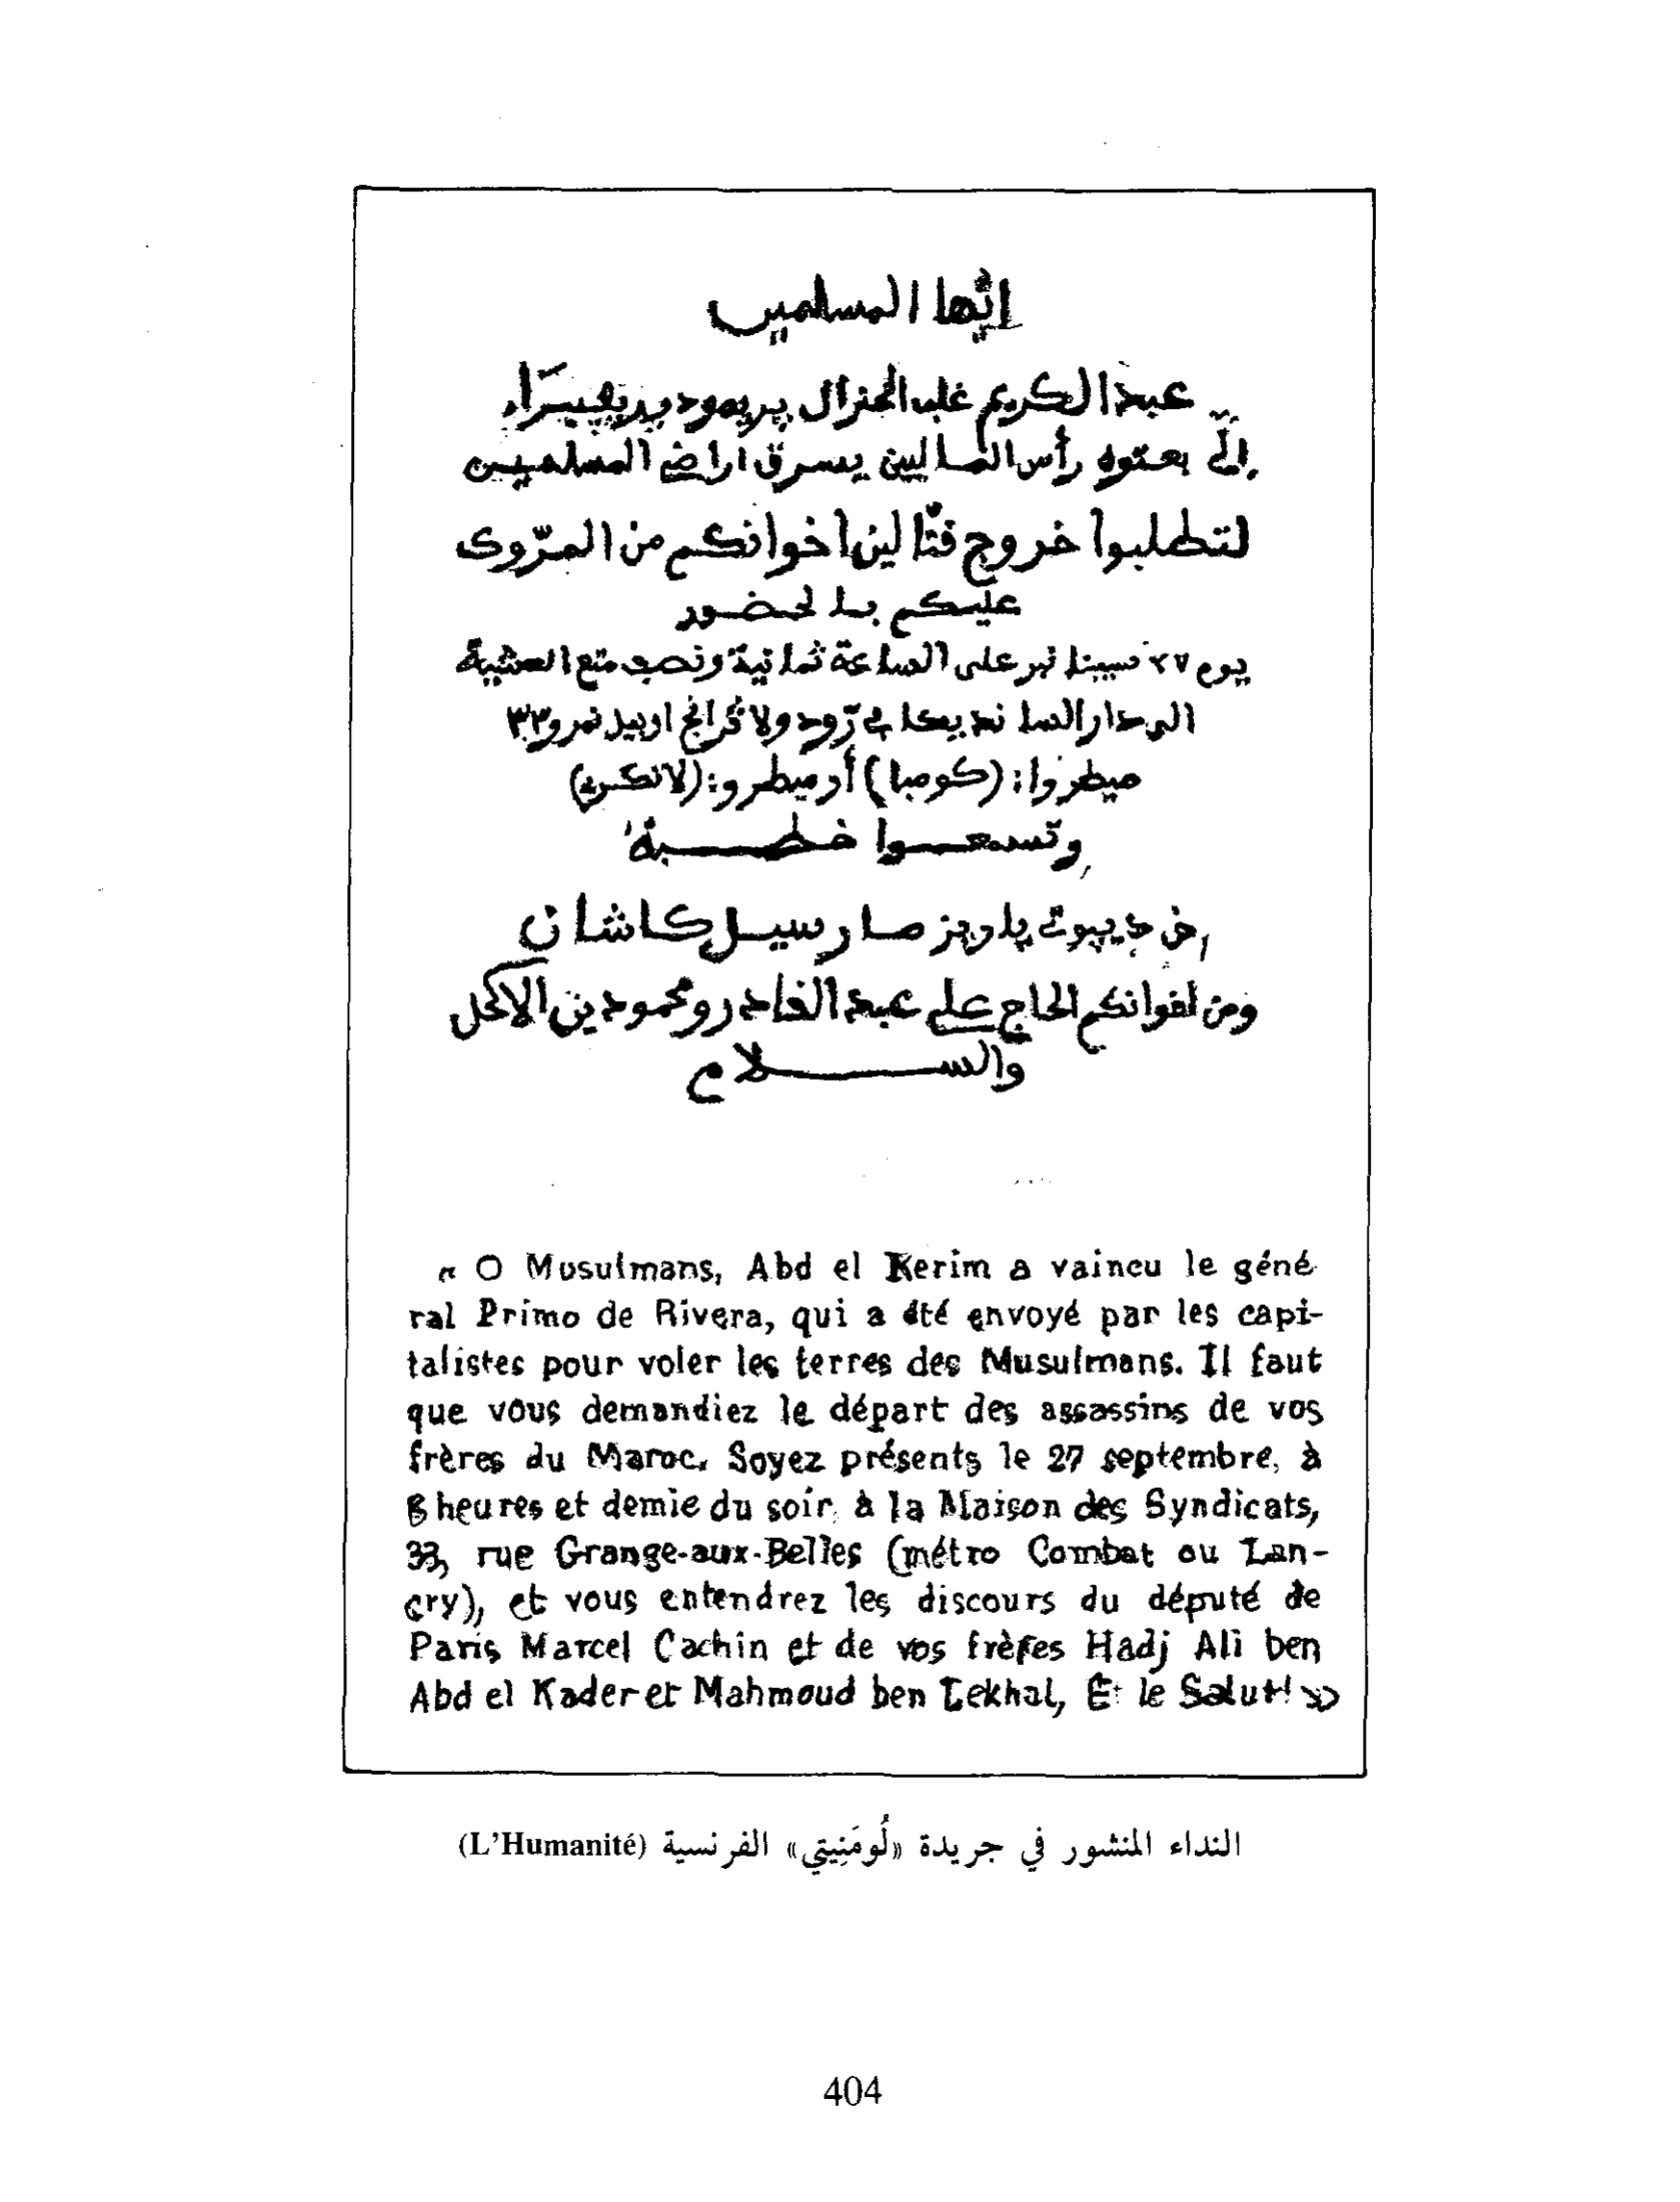 ايّها المسلمين
عبد الكريم غلب الجنرال پريمو ديريڢيرَا
إليّ بعتوه رأس الماليين يسرق اراضي المسلمين
لتطلبوا خروج قتّالين اخوانكم من المرّوك
عليكم بالحضور
يوم ٢٧ سيبتانبر على الساعة ثمانية ونصب متع العشية
الى دار السانديكا في رّود ولاڤرانج اوبيل نمرو ٣٣
ميطروا: (كومبا) أو ميطرو: (لانكري)
وتسمعوا خطبة
من ديپوتي پاريز مارسيل كاشان
ومن اخوانكم الحاج علي عبد القادر ومحمود بن الاكحل
والسلام
« O Musulmans, Abd el Kerim a vaincu le géné
ral Primo de Rivera, qui a été envoyé par les capi-
talistes pour voler les terres des Musulmans. Il faut
que vous demandiez le départ des assassins de vos
frères du Maroc. Soyez présents le 27 septembre, à
8 heures et demie du soir, à la Maison des Syndicats,
33, rue Grange-aux-Belles (métro Combat ou Lan-
cry), et vous entendrez les discours du député de
Paris Marcel Cachin et de vos frères Hadj Ali ben
Abd el Kader et Mahmoud ben Lekhal, Et le Salut! »
النداء المنشور في جريدة «لُومَنِيتي» الفرنسية (L'Humanité)
404